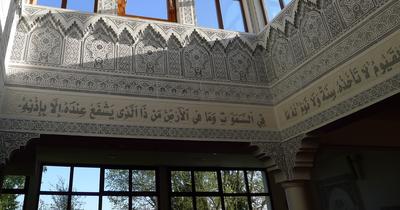 القيوم لا تأخذه سنة ولا نوم له ما
في السموت وما في الأرض من ذا الذي يشفع عنده إلا بإذنه